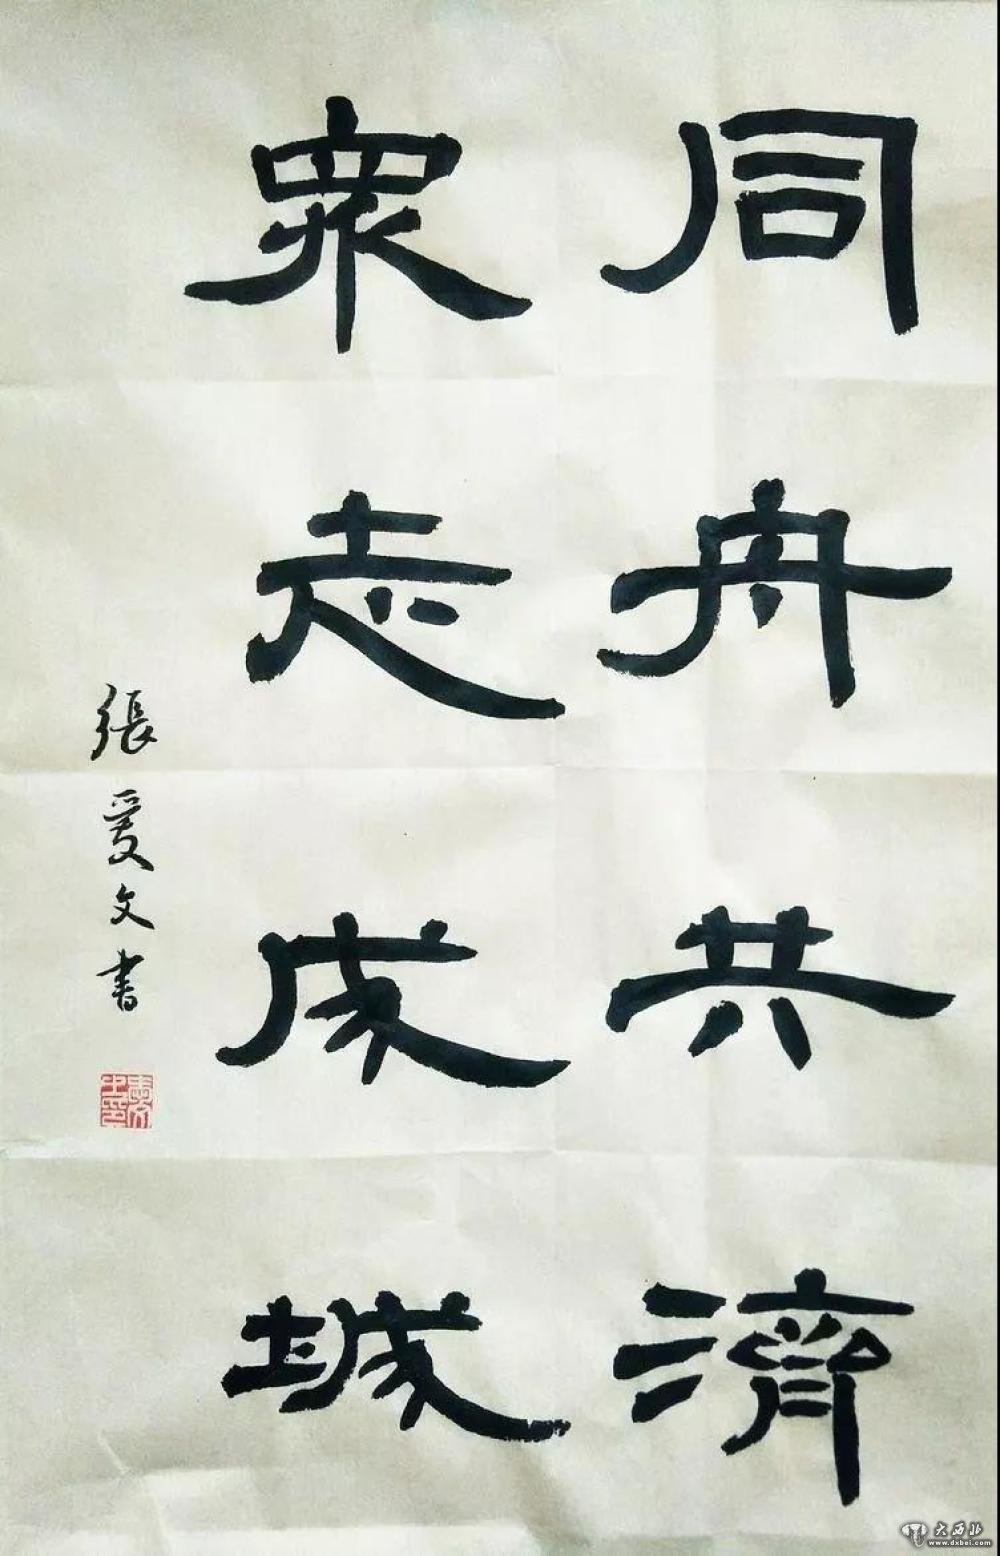 同舟共濟
眾志成城
張愛文書
大西北
www.dxbei.com